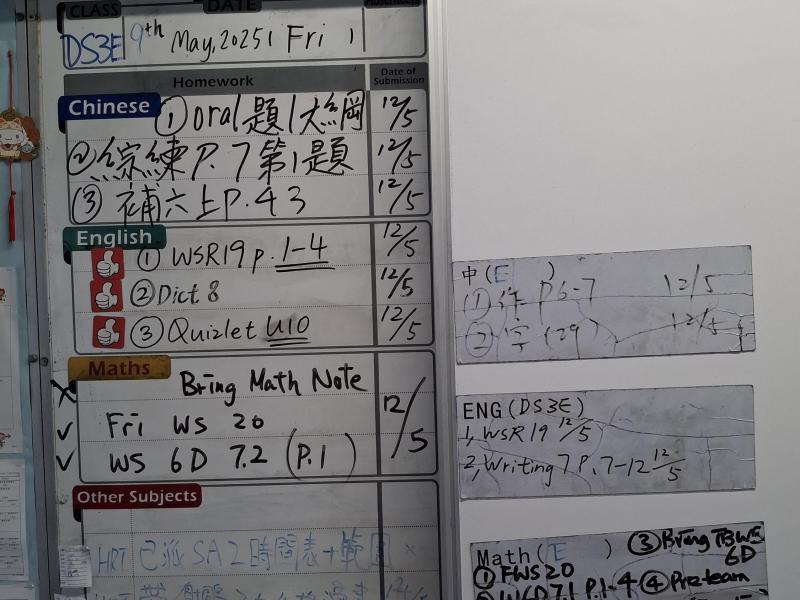 CLASS DATE
DS3E 9th May, 2025, Fri 1
Homework Date of Submission
Chinese ① oral題1大綱 12/5
② 綜練P.7第1題 12/5
③ 補六上P.43 12/5
English ① WSR19 p. 1-4 12/5
② Dict 8 12/5
③ Quizlet U10 12/5
Maths Bring Math Note
Fri WS 20 12/5
WS 6D 7.2 (P.1)
Other Subjects
HRT 已派SA2時間表+範圍 ×
中(E )
① 作 P6-7 12/5
② 字 (29) 12/5
ENG (DS3E)
1, WSR19 12/5
2, Writing 7 P.7-12 12/5
Math (E ) ③ Bring
① FWS20 6D
7.1 P.1-4 ④ Pre team